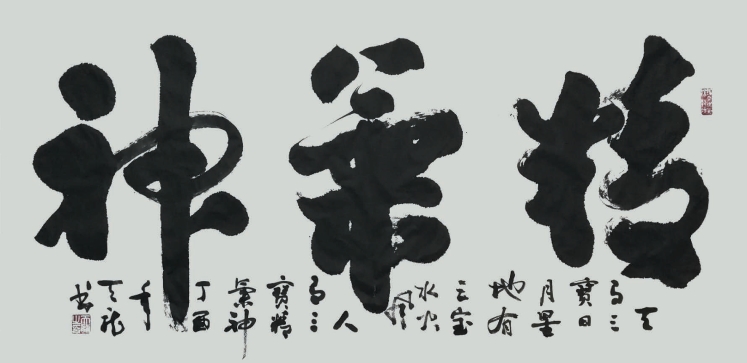 精氣神
天
有三
寶日
月星
地有
三宝
水火
風
人
有三
寶精
氣神
丁酉
年
天龍
書